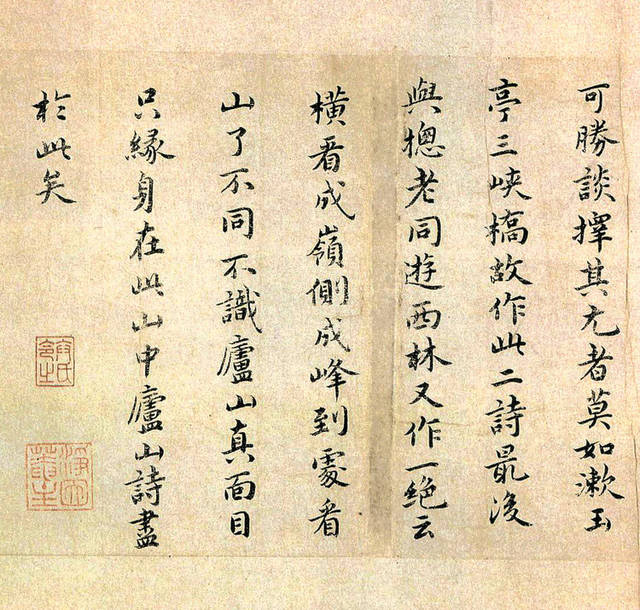 可勝談擇其尤者莫如漱玉
亭三峽橋故作此二詩最後
與摠老同遊西林又作一絶云
橫看成嶺側成峰到處看
山了不同不識廬山真面目
只緣身在此山中廬山詩盡
於此矣